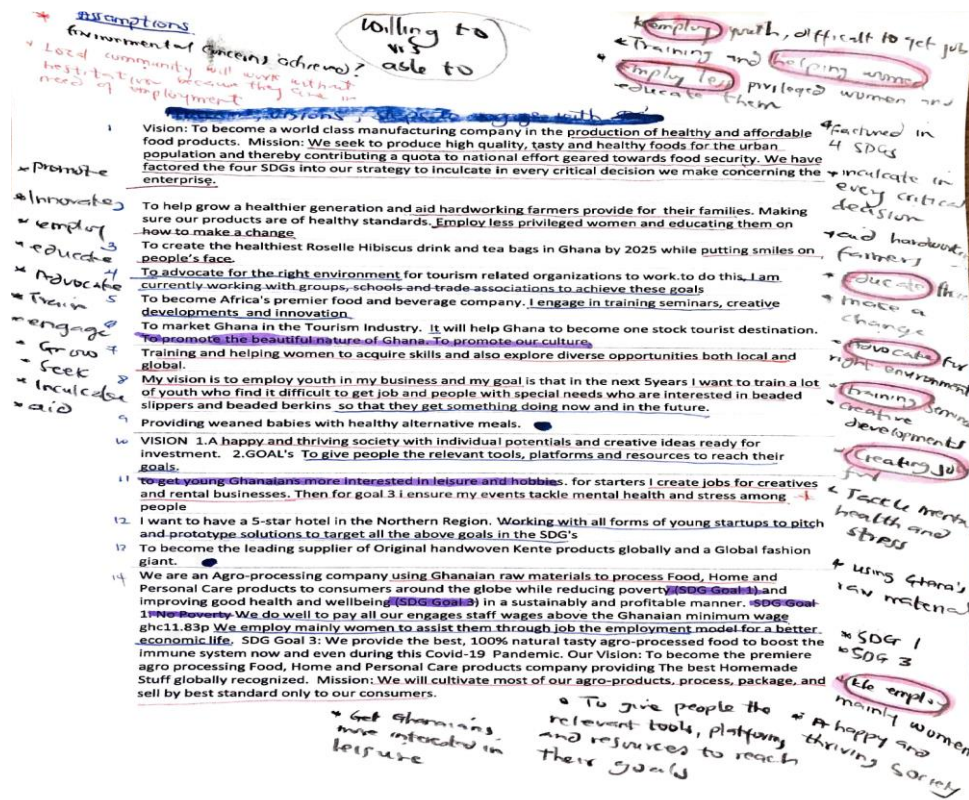 * Assumptions
Environmental concerns achieved?
* Local community will work without
hesitation because they are in
need of employment
willing to
vis
able to
* employ youth, difficult to get job
* Training and helping women
* employ less privileged women and
educate them
1 Vision: To become a world class manufacturing company in the production of healthy and affordable
food products. Mission: We seek to produce high quality, tasty and healthy foods for the urban
population and thereby contributing a quota to national effort geared towards food security. We have
factored the four SDGs into our strategy to inculcate in every critical decision we make concerning the
enterprise.
2 To help grow a healthier generation and aid hardworking farmers provide for their families. Making
sure our products are of healthy standards. Employ less privileged women and educating them on
how to make a change
3 To create the healthiest Roselle Hibiscus drink and tea bags in Ghana by 2025 while putting smiles on
people's face.
4 To advocate for the right environment for tourism related organizations to work.to do this, I am
currently working with groups, schools and trade associations to achieve these goals
5 To become Africa's premier food and beverage company. I engage in training seminars, creative
developments and innovation
To market Ghana in the Tourism Industry. It will help Ghana to become one stock tourist destination.
To promote the beautiful nature of Ghana. To promote our culture
7 Training and helping women to acquire skills and also explore diverse opportunities both local and
global.
8 My vision is to employ youth in my business and my goal is that in the next 5years I want to train a lot
of youth who find it difficult to get job and people with special needs who are interested in beaded
slippers and beaded berkins so that they get something doing now and in the future.
9 Providing weaned babies with healthy alternative meals.
10 VISION 1.A happy and thriving society with individual potentials and creative ideas ready for
investment. 2.GOAL's To give people the relevant tools, platforms and resources to reach their
goals.
11 to get young Ghanaians more interested in leisure and hobbies. for starters I create jobs for creatives
and rental businesses. Then for goal 3 i ensure my events tackle mental health and stress among
people
12 I want to have a 5-star hotel in the Northern Region. Working with all forms of young startups to pitch
and prototype solutions to target all the above goals in the SDG's
13 To become the leading supplier of Original handwoven Kente products globally and a Global fashion
giant.
14 We are an Agro-processing company using Ghanaian raw materials to process Food, Home and
Personal Care products to consumers around the globe while reducing poverty (SDG Goal 1) and
improving good health and wellbeing (SDG Goal 3) in a sustainably and profitable manner. SDG Goal
1: No Poverty We do well to pay all our engages staff wages above the Ghanaian minimum wage
ghc11.83p We employ mainly women to assist them through job the employment model for a better
economic life. SDG Goal 3: We provide the best, 100% natural tasty agro-processed food to boost the
immune system now and even during this Covid-19 Pandemic. Our Vision: To become the premiere
agro processing Food, Home and Personal Care products company providing The best Homemade
Stuff globally recognized. Mission: We will cultivate most of our agro-products, process, package, and
sell by best standard only to our consumers.
* Promote
* Innovate
* employ
* educate
* Advocate
* Train
* engage
* Grow
* Seek
* Inculcate
* aid
* factored in
4 SDGs
* inculcate in
every critical
decision
* aid hardwork
farmers
* educate
* make a
change
* Advocate for
right environment
* Training
* creative
developments
* creating job
* Tackle mental
health and
stress
* using Ghana's
raw material
* SDG 1
* SDG 3
* employ
mainly women
* A happy and
thriving society
* To give people the
relevant tools, platforms
and resources to reach
their goals
* Get Ghanaians
more interested in
leisure